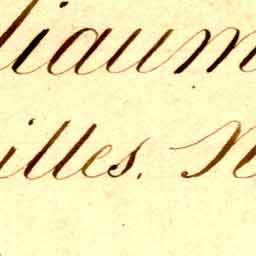 liaum
illes. N